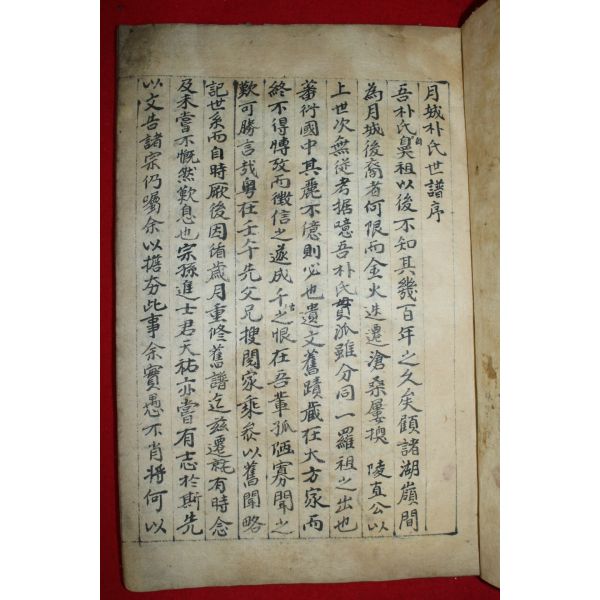 月城朴氏世譜序
吾朴氏自鼻祖以後不知其幾百年之久矣顧諸湖嶺間
為月城後裔者何限而金火迭遷滄桑屢換 陵直公以
上世次無從考据噫吾朴氏貫派雖分同一羅祖之出也
蕃衍國中其麗不億則必也遺文舊蹟藏在大方家而
終不得博攷而徵信之遂成千古之恨在吾輩孤陋寡聞之
歎可勝言哉粤在壬午先父兄搜閱家乘參以舊聞略
記世系而自時厥後因循歲月重修舊譜迄玆遷就有時念
及未嘗不慨然歎息也宗孫進士君天祐亦嘗有志於斯先
以文告諸宗仍囑余以擔夯此事余實愚不肖將何以